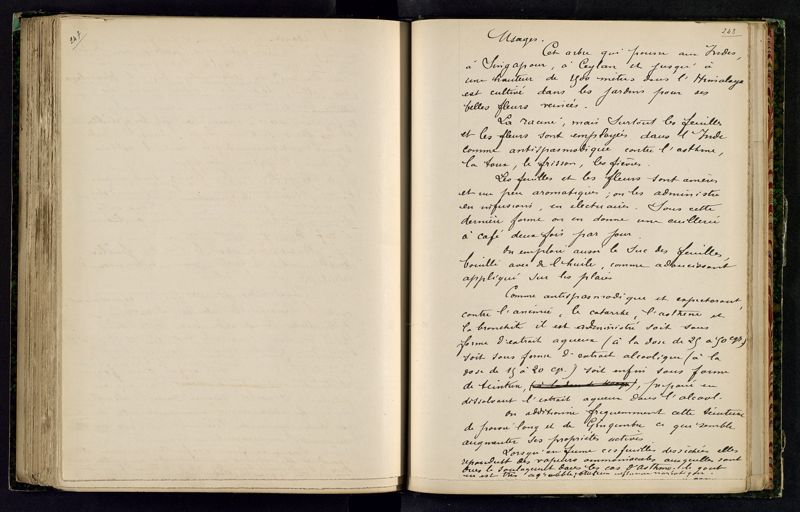 247
243
Usages.
Cet arbre qui pousse aux Indes,
à Singapour, à Ceylan et jusqu'à
une hauteur de 1500 mètres dans l'Himalaya
est cultivé dans les jardins pour ses
belles fleurs
La racine, mais surtout les feuilles
et les fleurs sont employées dans l'Inde
comme antispasmodique contre l'asthme,
la toux, le frisson, les fièvres.
Les feuilles et les fleurs sont amères
et un peu aromatiques; on les administre
en infusions, en électuaires. Sous cette
dernière forme on en donne une cuillerée
à café deux fois par jour.
On emploie aussi le suc des feuilles,
bouilli avec de l'huile, comme adoucissant
appliqué sur les plaies
Comme antispasmodique et expectorant,
contre l'anémie, le catarrhe, l'asthme et
la bronchite il est administré soit sous
forme d'extrait aqueux (à la dose de 25 à 50 cgr)
soit sous forme d'extrait alcoolique (à la
dose de 15 à 20 cgr.) soit enfin sous forme
de teinture, préparé en
dissolvant l'extrait aqueux dans l'alcool.
On additionne fréquemment cette teinture
de poivre long et de Gingembre ce qui semble
augmenter ses propriétés actives
Lorsqu'on fume ces feuilles desséchées elles
répandent des vapeurs ammoniacales auxquelles sont
dues le soulagement dans les cas d'asthme. Le goût
en est très agréable,